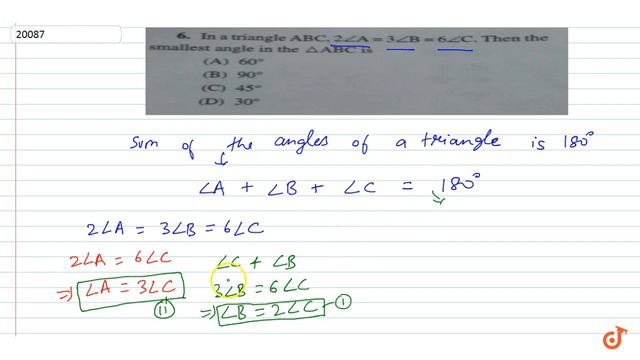 20087
6. In a triangle ABC, 2∠A = 3∠B = 6∠C. Then the
smallest angle in the △ABC is
(A) 60°
(B) 90°
(C) 45°
(D) 30°
Sum of the angles of a triangle is 180°
∠A + ∠B + ∠C = 180°
2∠A = 3∠B = 6∠C
2∠A = 6∠C
⇒ ∠A = 3∠C
(II)
∠C + ∠B
3∠B = 6∠C
⇒ ∠B = 2∠C — (I)